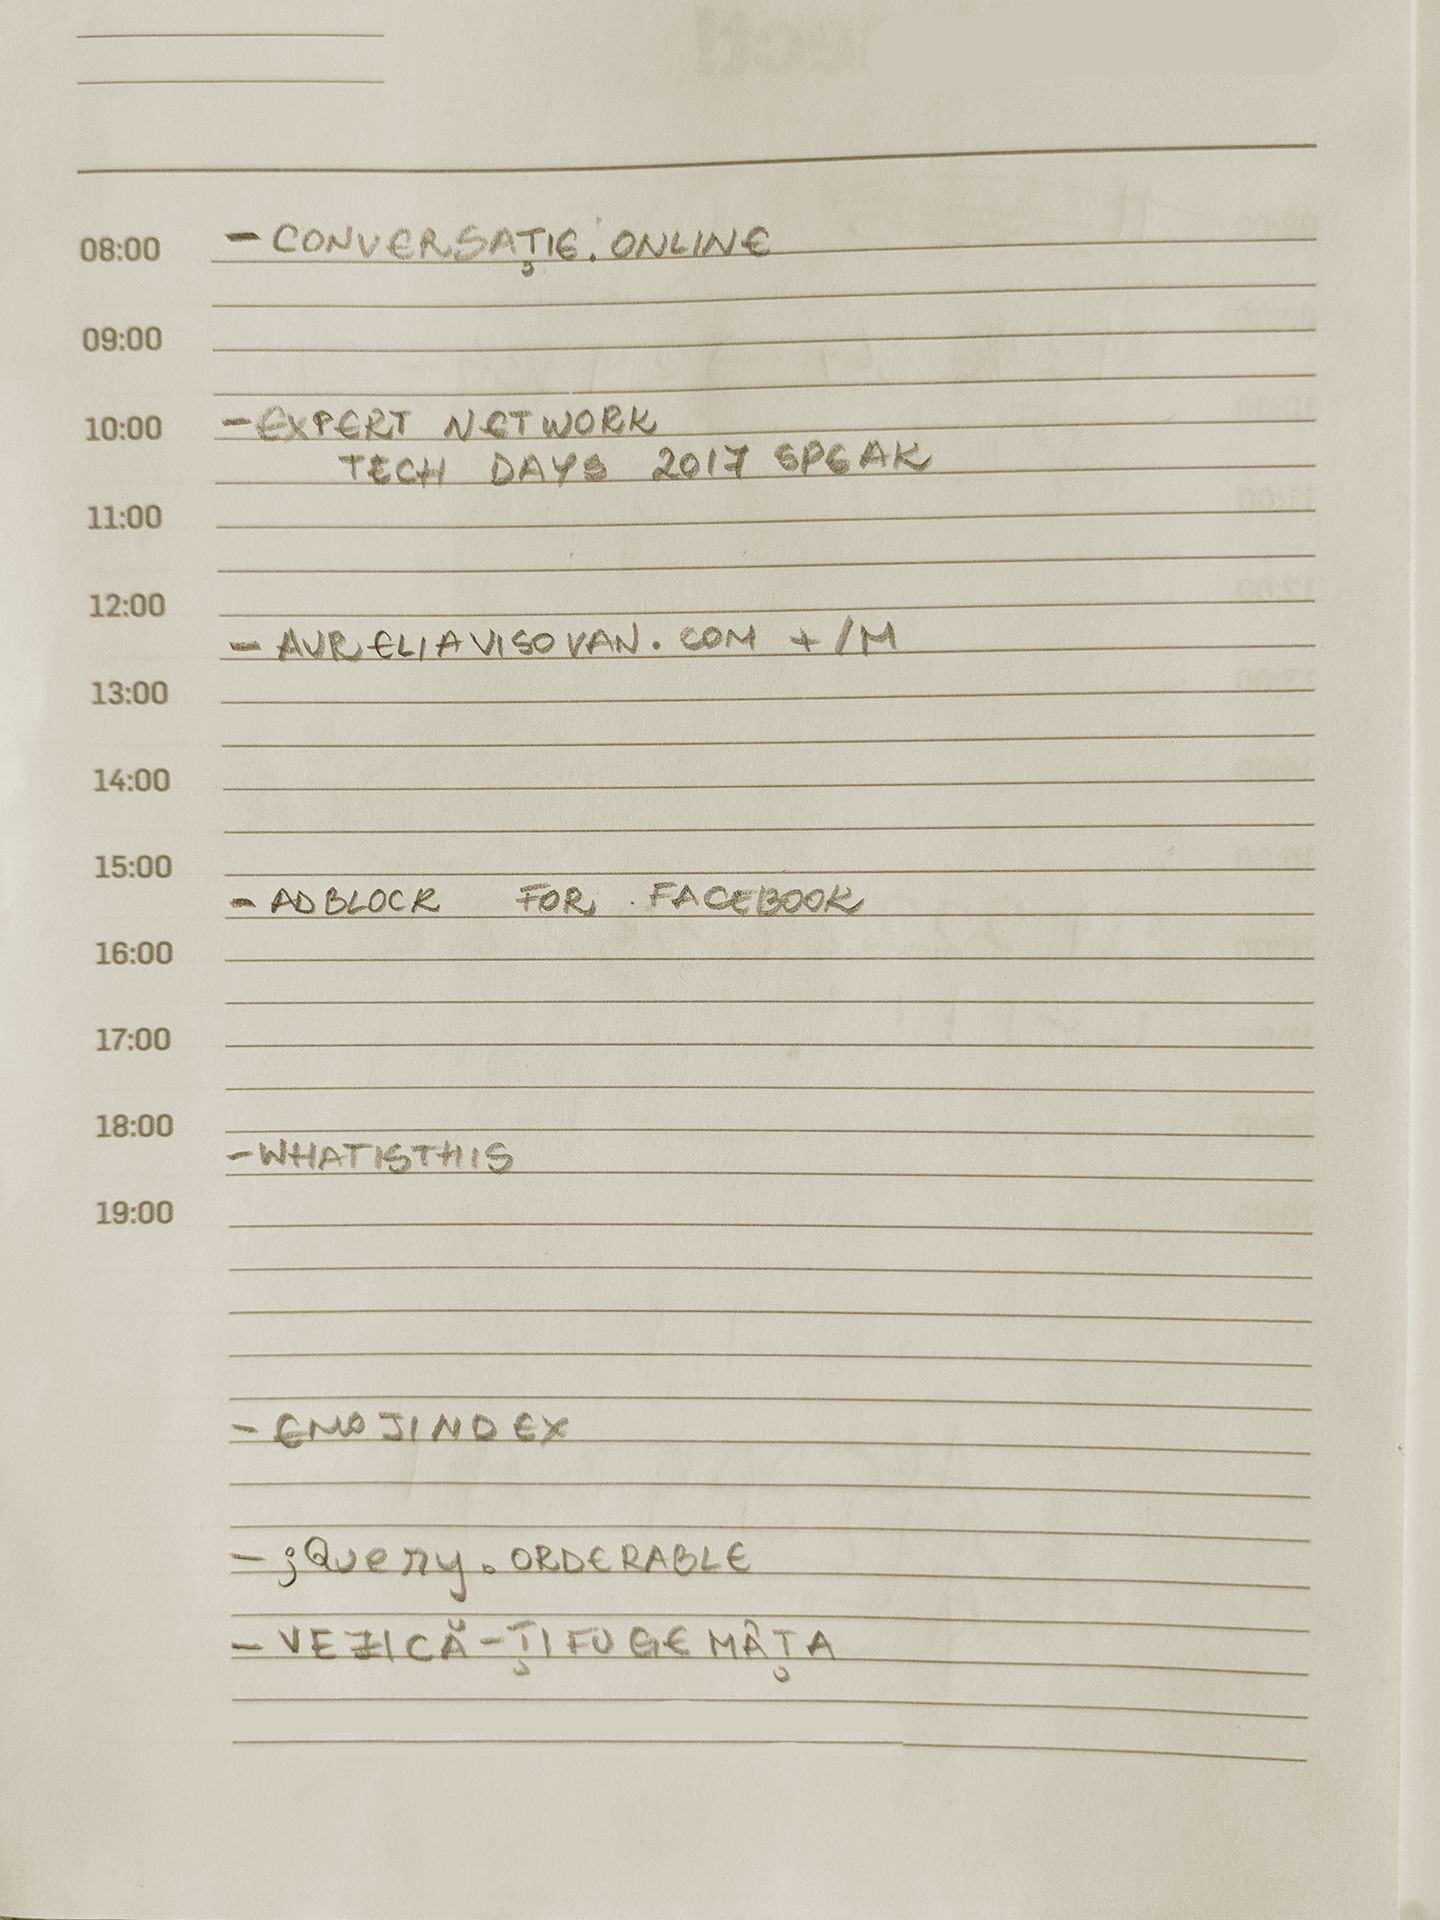 08:00 - CONVERSAȚIE.ONLINE
09:00
10:00 - EXPERT NETWORK
TECH DAYS 2017 SPEAK
11:00
12:00
- AURELIAVISOVAN.COM + /M
13:00
14:00
15:00
- ADBLOCK FOR FACEBOOK
16:00
17:00
18:00
- WHATISTHIS
19:00
- EMOJINDEX
- jQuery.ORDERABLE
- VEZICĂ-ȚIFUGEMÂȚA